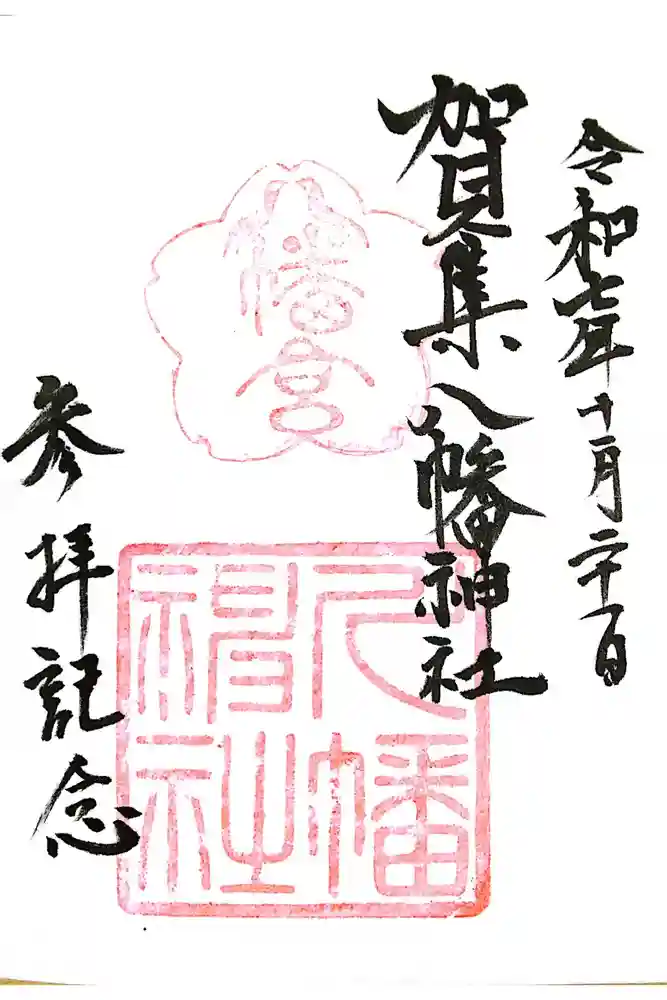 令和七年十一月二十一日
賀集八幡神社
参拝記念
八幡宮
八幡
神社